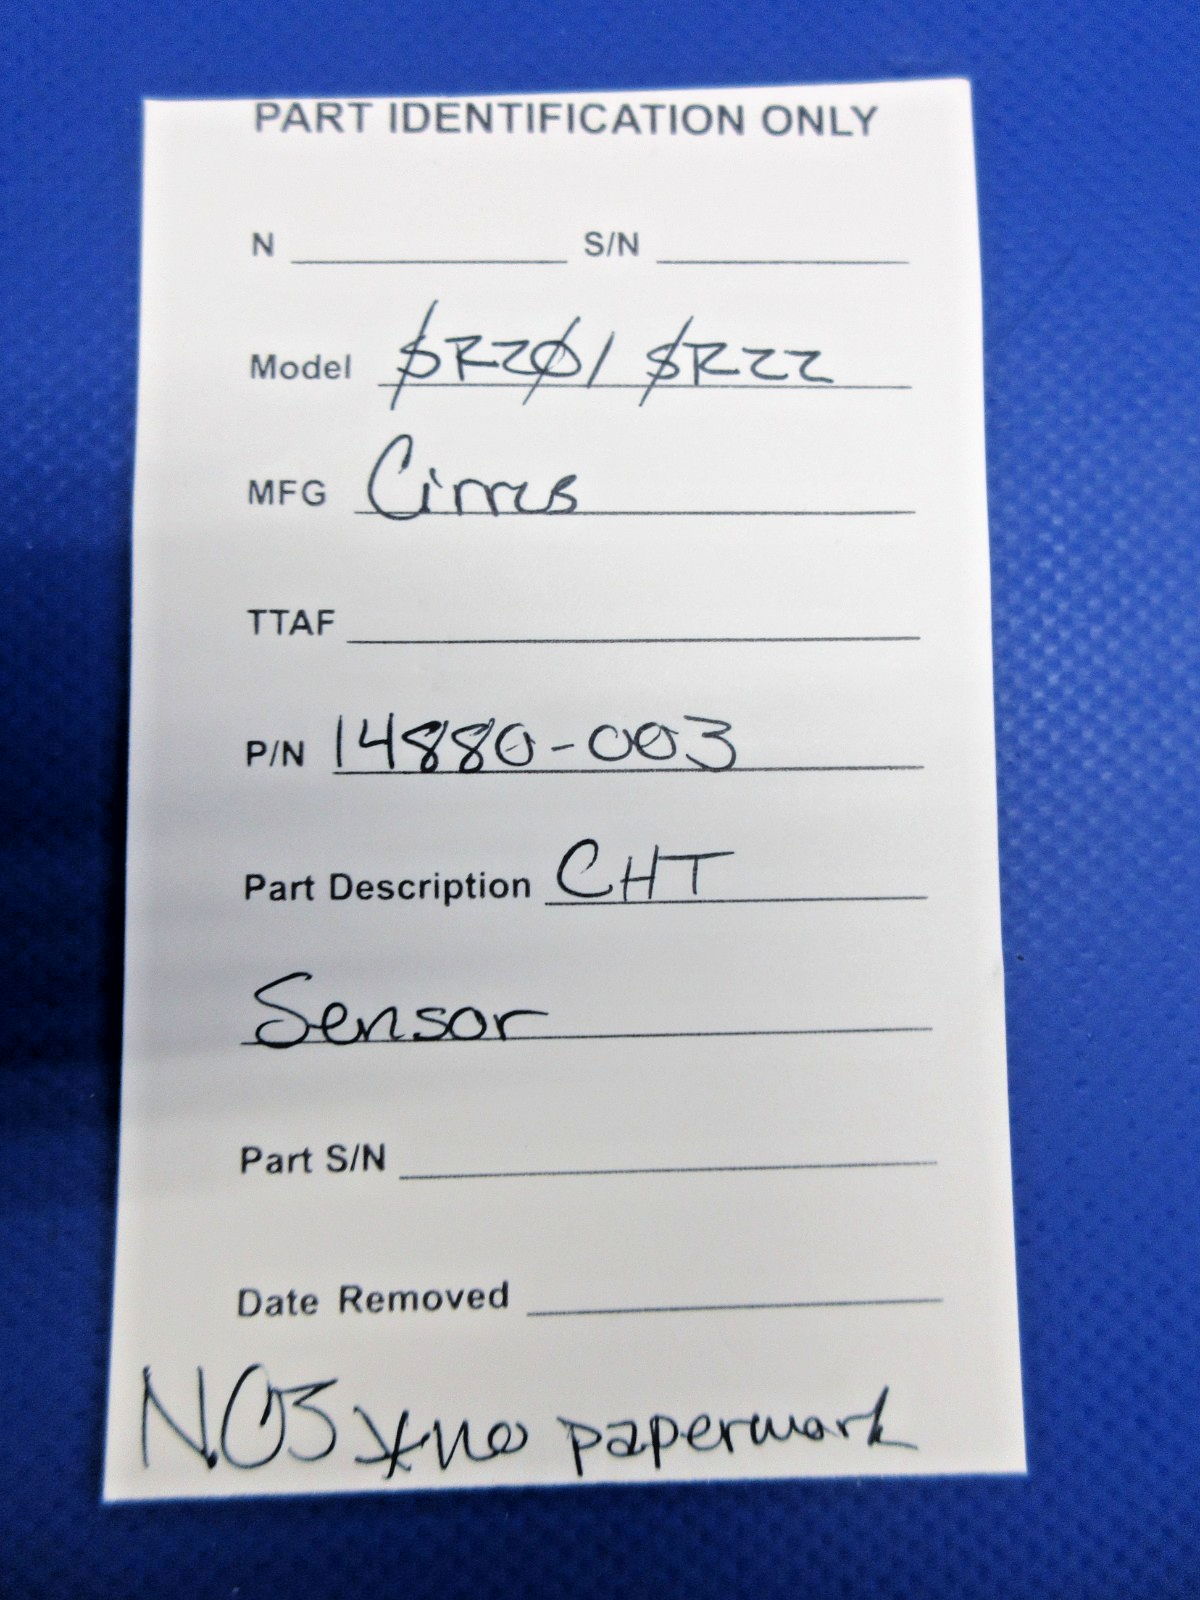 PART IDENTIFICATION ONLY
N S/N
Model SR20/ SR22
MFG Cirrus
TTAF
P/N 14880-003
Part Description CHT
Sensor
Part S/N
Date Removed
NOS *no paperwork